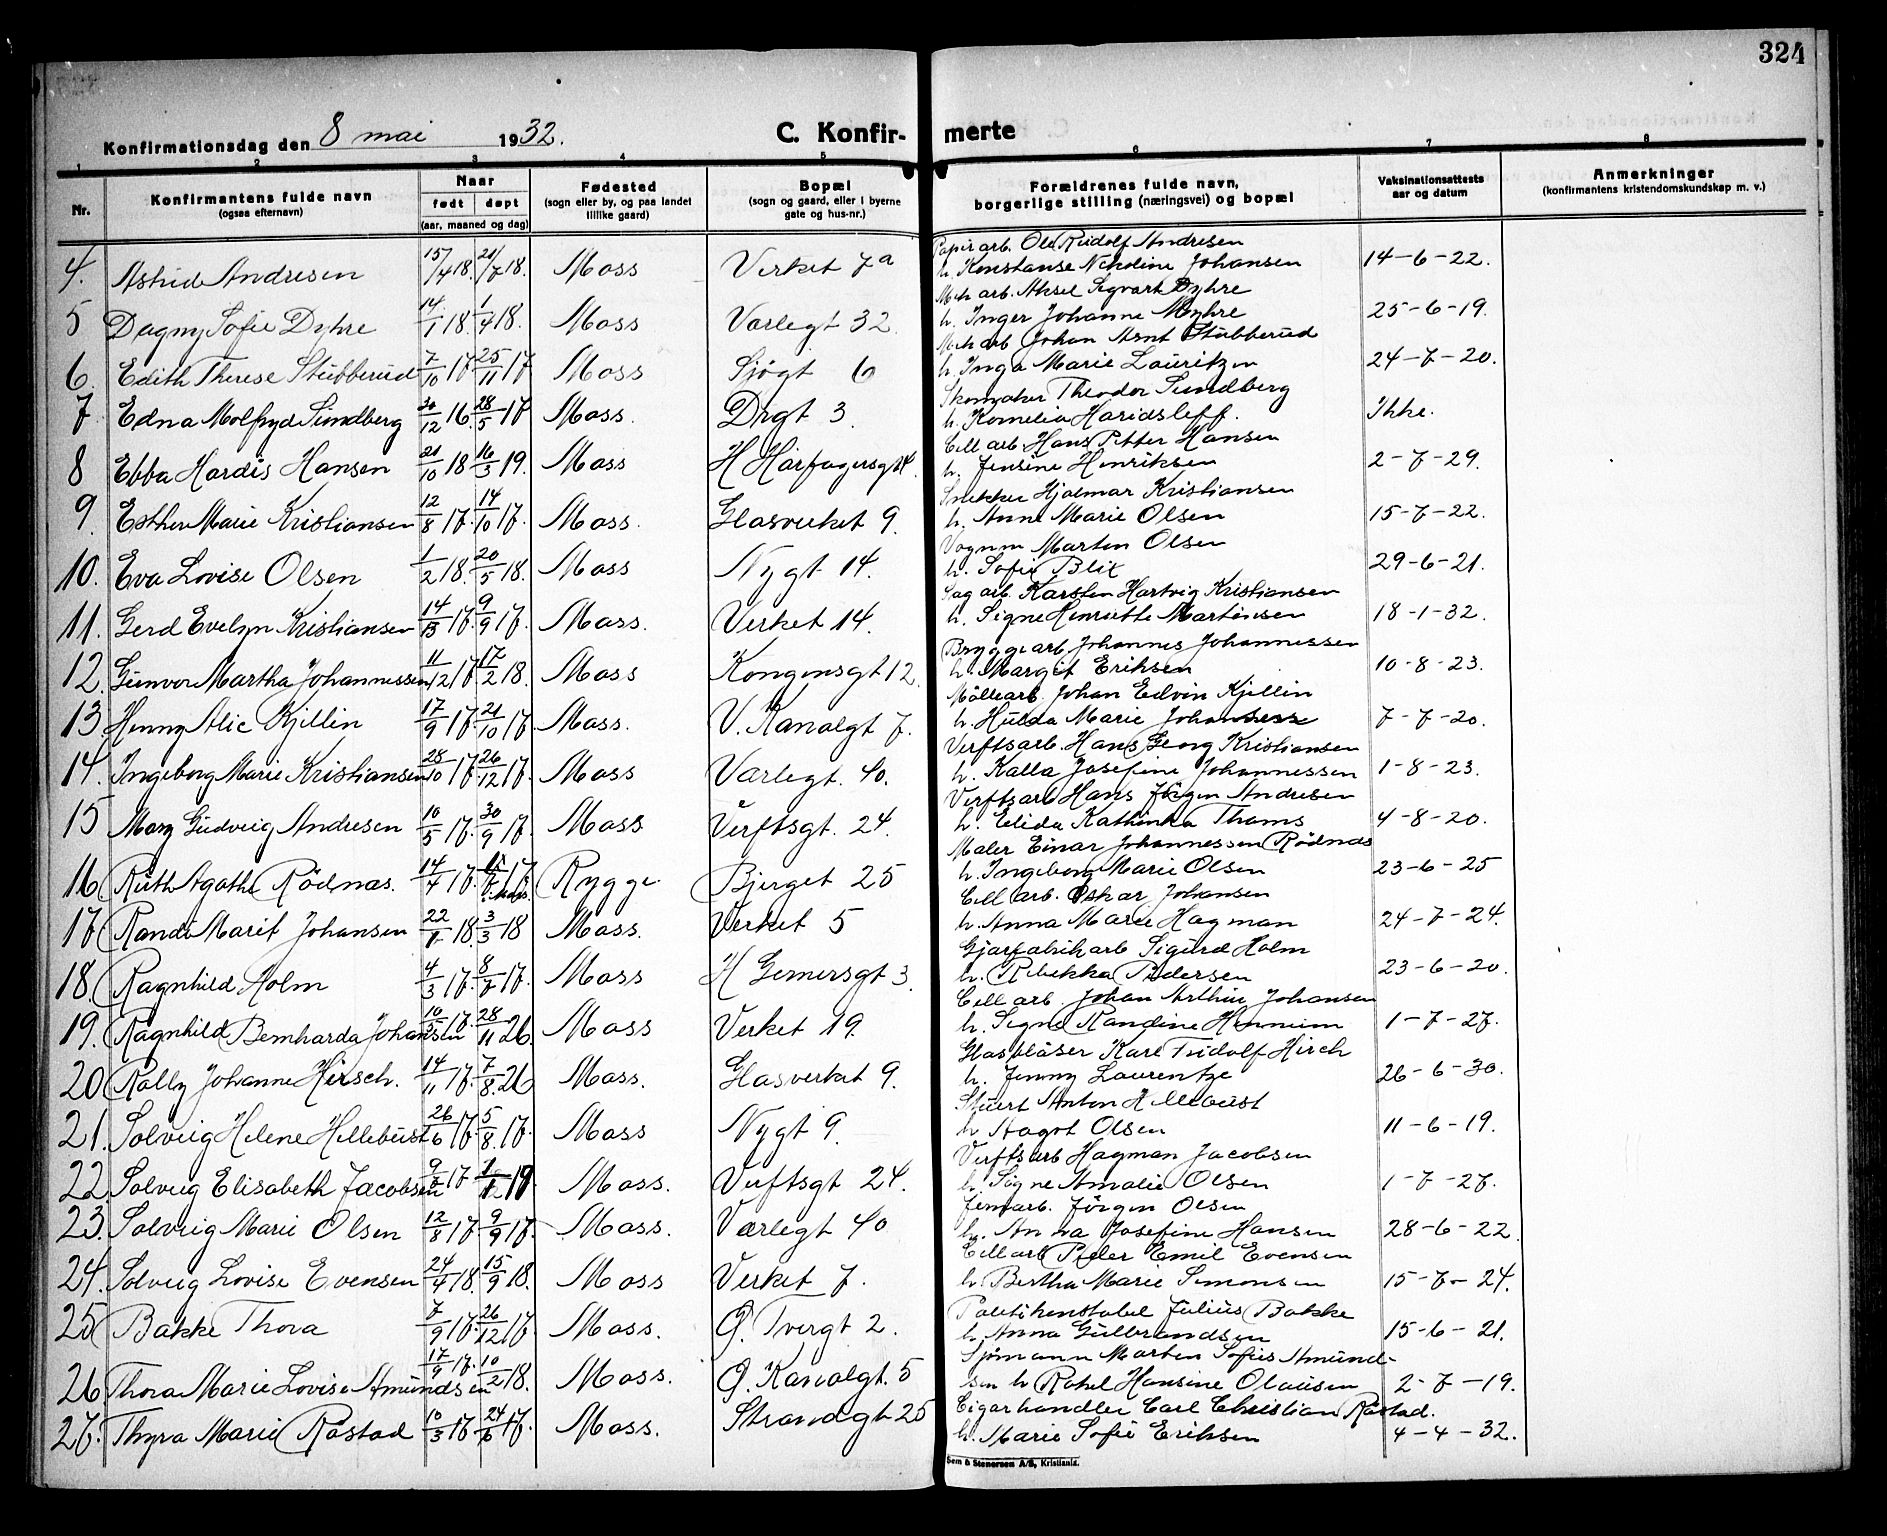 324
Konfirmationsdag den 8 mai 1932.
C. Konfirmerte
1 2 3 4 5 6 7 8
Nr. | Konfirmantens fulde navn (ogsaa efternavn) | Naar født døpt (aar, maaned og dag) | Fødested (sogn eller by, og paa landet tillike gaard) | Bopæl (sogn og gaard, eller i byerne gate og hus-nr.) | Forældrenes fulde navn, borgerlige stilling (næringsvei) og bopæl | Vaksinationsattests aar og datum | Anmerkninger (konfirmantens kristendomskundskap m. v.)
4. Astrid Andresen 15/4 18. 21/7 18. Moss Verket 7a Papirarb. Ole Rudolf Andresen
h. Konstanse Nikoline Johansen 14-6-22.
5 Dagny Sofie Dyhre 14/1 18. 1/4 18. Moss Varlegt 32. Mek arb. Aksel Sigvart Dyhre
h. Inger Johanne Myhre 25-6-19.
6. Edith Therese Stubberud 7/10 17 25/11 17 Moss Sjøgt 6 Mek arb Johan Arnt Stubberud
h. Inga Marie Lauritzen 24-7-20.
7. Edna Molfryd Sundberg 30/12 16. 28/5 17 Moss. Drgt 3. Skomaker Theodor Sundberg
h. Kornelia Haridsleff. Ikke.
8 Ebba Hardis Hansen 21/10 18 16/3 19. Moss H Hårfagersgt 14. Cell arb. Hans Petter Hansen
h. Jensine Henriksen 2-7-29.
9. Esther Marie Kristiansen 12/8 17. 14/10 17. Moss. Glasverket 9. Snekker Hjalmar Kristiansen
h. Anne Marie Olsen 15-7-22.
10. Eva Lovise Olsen 1/2 18. 20/5 18. Moss Nygt 14. Vognm Marten Olsen
h. Sofie Blix 29-6-21.
11. Gerd Evelyn Kristiansen 14/3 17. 9/9 17. Moss. Verket 14. Sag arb. Karsten Hartvig Kristiansen
h. Signe Henriette Martinsen 18-1-32.
12. Gunvor Martha Johannessen 11/12 17. 17/2 18. Moss Kongensgt 12. Bryggearb Johannes Johannessen
h. Margit Eriksen 10-8-23.
13. Henny Alic Kjellin 17/9 17. 21/10 17 Moss. V. Kanalgt 7. Møllearb. Johan Edvin Kjellin
h. Hulda Marie Johansen 7-7-20.
14. Ingeborg Marie Kristiansen 28/10 17. 26/12 17. Moss Varlegt. 40. Verftsarb. Hans Georg Kristiansen
h. Kalla Josefine Johannessen 1-8-23.
15 Mary Gudveig Andresen 10/5 17. 30/9 17. Moss Verftsgt. 24. Verftsarb Hans Jörgen Andresen
h. Elida Kathinka Thoms 4-8-20.
16 Ruth Agathe Rödnas. 14/4 17. 17. Rygge Bjerget 25 Maler Einar Johannessen Rödnas
h. Ingeborg Marie Olsen 23-6-25
17 Randi Marit Johansen 22/1 18. 3/3 18 Moss. Verket 5 Cell arb. Oskar Johansen
h. Anna Marie Hagman 24-7-24.
18. Ragnhild Holm 4/3 17. 8/7 17. Moss H Gernersgt 3. Gjærfabrikarb Sigurd Holm
h. Rebekka Pedersen 23-6-20.
19. Ragnhild Bernharda Johansen 10/5 17. 28/11 26. Moss Verket 19. Cell arb. Johan Arthur Johansen
h. Signe Randine Hennum 1-7-27.
20. Rally Johanne Hirsch. 14/11 17. 7/8. 26 Moss. Glasverket 9. Glasblåser Karl Tudolf Hirch
h. Jenny Laurentze 26-6-30.
21. Solveig Helene Hellebust 26/6 17. 5/8. 17. Moss Nygt 9. Stuert Anton Hellebust
h Aagot Olsen 11-6-19.
22. Solveig Elisabeth Jacobsen 17 19 Moss. Verftsgt 24. Verfts arb Hagman Jacobsen
h. Signe Amalie Olsen 1-7-27.
23. Solveig Marie Olsen 12/8 17. 9/9 17. Moss. Værlegt 40 Jernarb. Jörgen Olsen
h. Anna Josefine Hansen 28-6-22.
24. Solveig Lovise Evensen 24/4 18. 15/9 18. Moss Verket 7. Cell arb Peder Emil Evensen
h Bertha Marie Simonsen 15-7-24.
25 Bakke Thora 7/9 17. 26/12 17. Moss. Ø. Tvergt 2. Politikonstabel Julius Bakke
h Anna Gulbrandsen 15-6-21.
26 Thora Marie Lovise Amundsen 17/9 17. 10/2 18. Moss. Ø. Kanalgt. 5 Sjömann Marten Sofus Amund-
sen h Rakel Hansine Olausen 2-7-19.
27. Thyra Marie Råstad 10/3 17. 24/6 17. Moss. Strandgt 25 Cigarhandler Carl Christian Råstad.
h. Marie Sofie Eriksen 4-4-32.
Sem & Stenersen A/S, Kristiania.